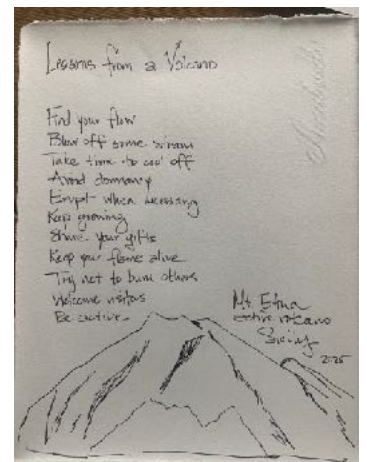 Lessons from a Volcano
Find your flow
Blow off some steam
Take time to cool off
Avoid dormancy
Erupt when necessary
Keep growing
Share your gifts
Keep your flame alive
Try not to burn others
Welcome visitors
Be active
Mt Etna
active volcano
Sicily
2025